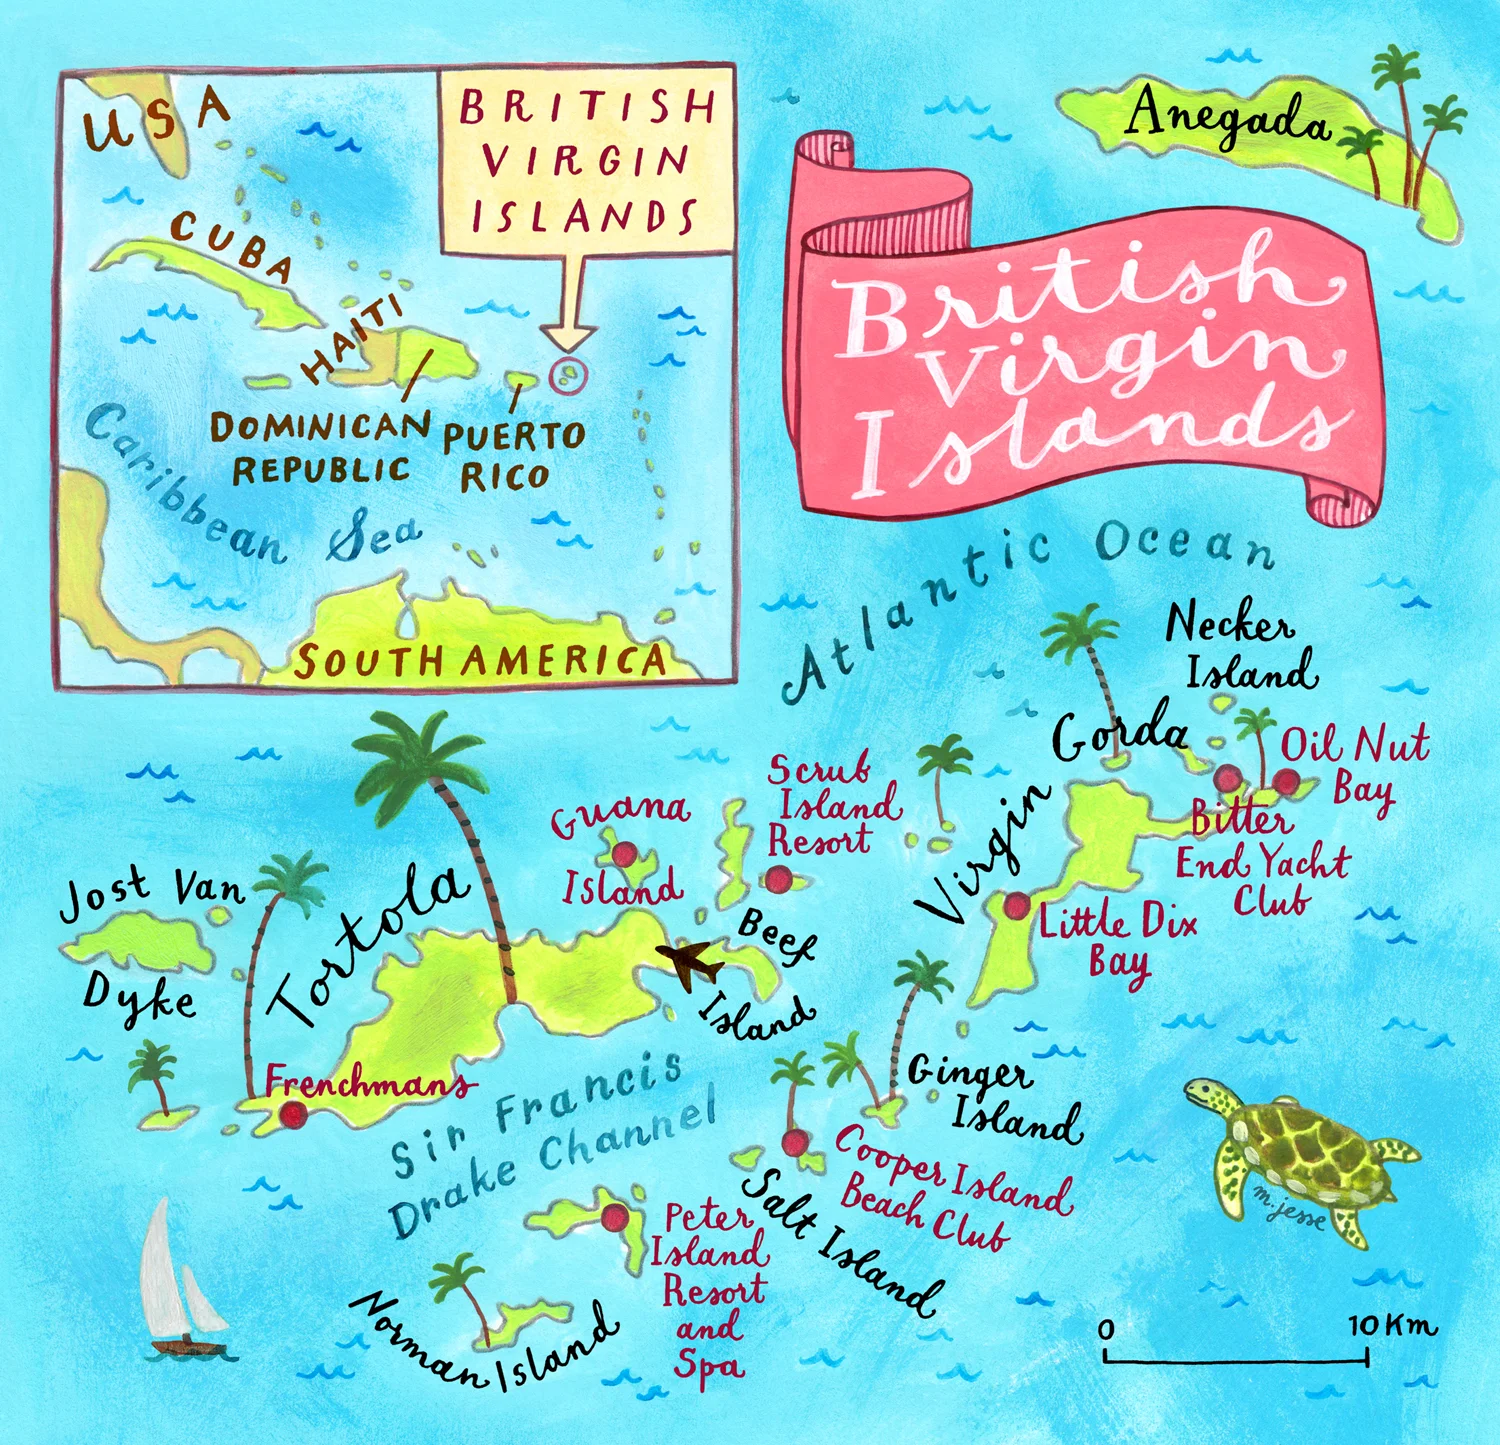 USA
CUBA
HAITI
DOMINICAN
REPUBLIC
PUERTO
RICO
Caribbean Sea
SOUTH AMERICA
BRITISH
VIRGIN
ISLANDS
Anegada
British
Virgin
Islands
Atlantic Ocean
Necker
Island
Virgin Gorda
Oil Nut
Bay
Bitter
End Yacht
Club
Little Dix
Bay
Scrub
Island
Resort
Guana
Island
Beef
Island
Tortola
Jost Van
Dyke
Frenchmans
Sir Francis
Drake Channel
Ginger
Island
Cooper Island
Beach Club
Salt Island
Peter
Island
Resort
and
Spa
Norman Island
m.jesse
0 10 Km